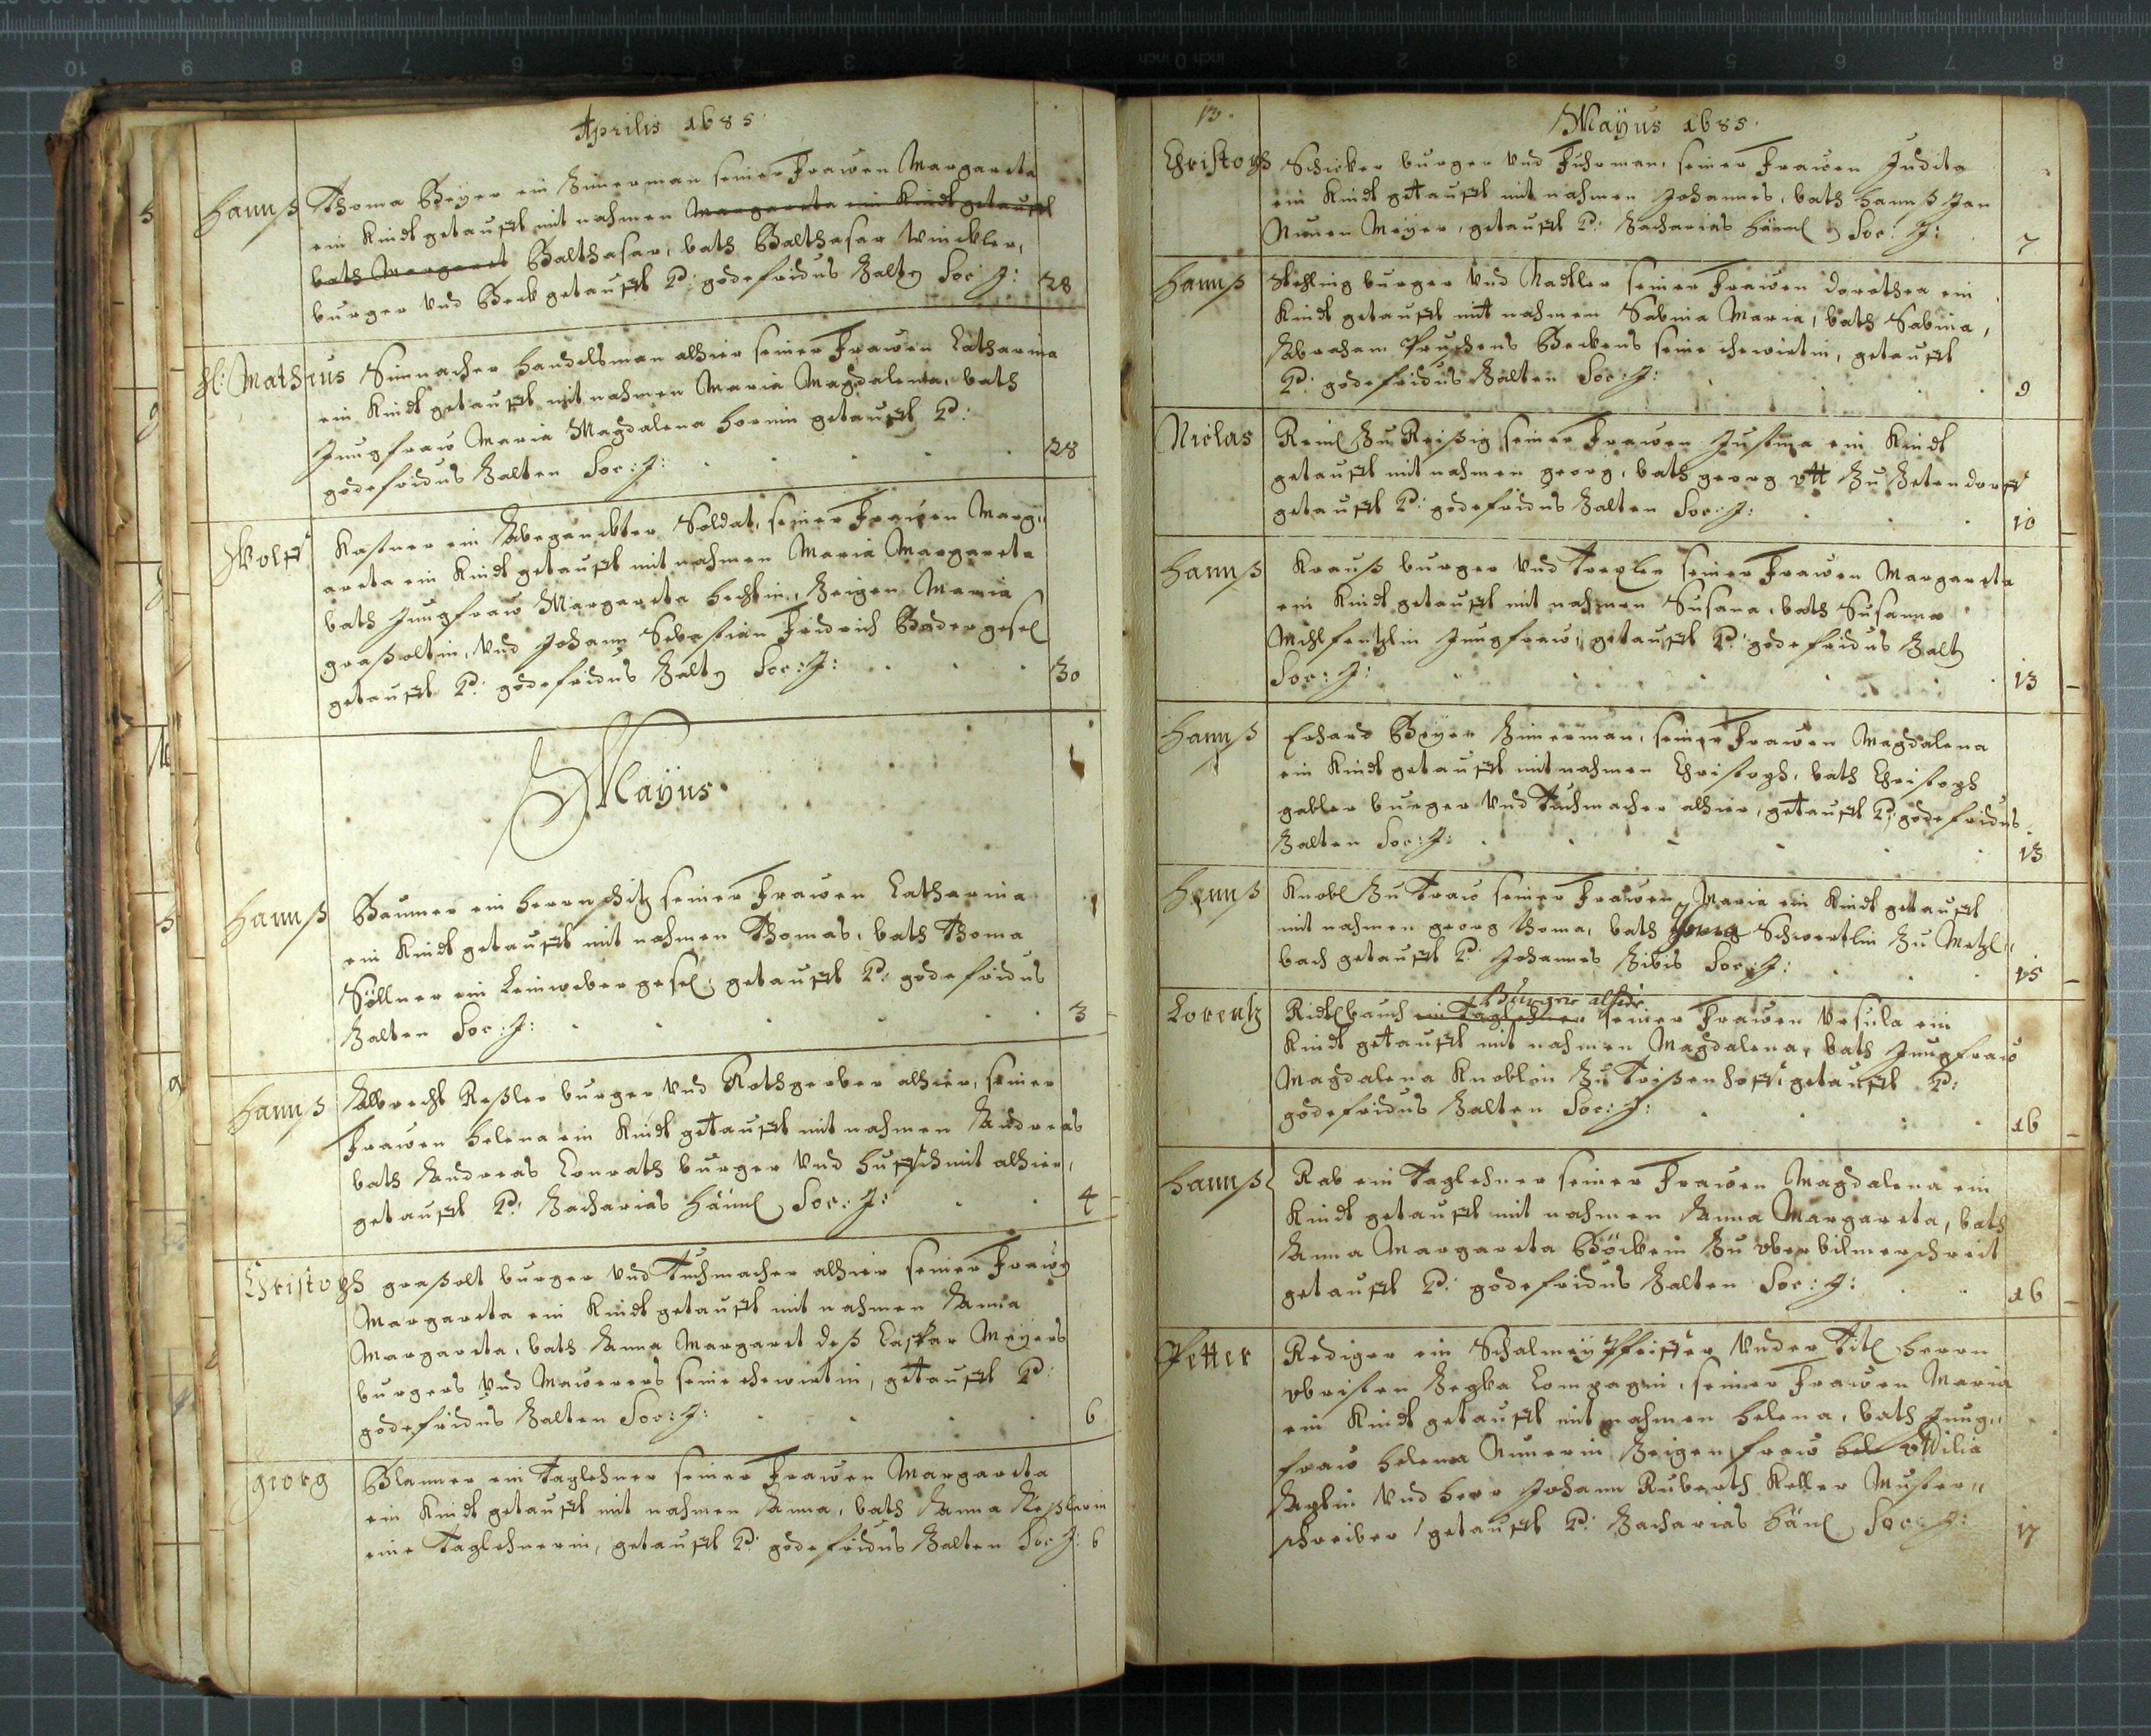 Aprilis 1685.
Hannß Thoma Beÿer ein Zimerman seiner Frawen Margareta
ein Kindt getaufft mit nahmen Margareta ein Kindt getaufft
bath Margaret Balthasar, bath Balthasar Winckler,
burger vnd Beck getaufft P: godefridus Zalten Soc: J: 28
H: Mathæus Simnacher handelsman alhier seiner Frawen Catharina
ein Kindt getaufft mit nahmen Maria Magdalena, bath
Jungfraw Maria Magdalena getaufft P:
godefridus Zalten Soc: J: 28
Wolff Kastner ein Abgedanckter Soldat, seiner Frawen Marg„
areta ein Kindt getaufft mit nahmen Maria Margareta
bath Jungfraw Margareta hechtin, Zeigen Maria
graßoltin, vnd Johann Sebastian Fridrich Badergesel
getaufft P: godefridus Zalten Soc: J: 30
Maÿus.
Hannß Baumer ein herrnschitz seiner Frawen Catharina
ein Kindt getaufft mit nahmen Thomas, bath Thoma
Söllner ein Leinwebergesel, getaufft P: godefridus
Zalten Soc: J: 3
Hannß Albrecht Keßler burger vnd Rothgerber alhier, seiner
Frawen helena ein Kindt getaufft mit nahmen Andreas
bath Andreas Conrath burger vnd huffschmit alhier,
getaufft P: Zacharias Häml Soc: J: 4
Christoph graßolt burger vnd Tuchmacher alhier seiner Frawen
Margareta ein Kindt getaufft mit nahmen Anna
Margareta, bath Anna Margaret deß Caspar Meÿers
burgers vnd Mawerers seine ehewirtin, getaufft P:
godefridus Zalten Soc: J: 6
Georg Blanner ein Taglehner seiner Frawen Margareta
ein Kindt getaufft mit nahmen Anna, bath Anna Keßlerin
eine Taglehnerin, getaufft P: godefridus Zalten Soc: J: 6
13.
Maÿus 1685.
Christoph Schicker burger vnd Fuhrman, seiner Frawen Judita
ein Kindt getaufft mit nahmen Johannes, bath Hannß Jan
Meÿer, getaufft P: Zacharias Häml Soc: J: 7
Hannß burger vnd Nadtler seiner Frawen Dorothea ein
Kindt getaufft mit nahmen Sabina Maria, bath Sabina,
Abraham Beckens seine ehewirtin, getaufft
P: godefridus Zalten Soc: J: 9
Niclas Reml Zu Reißig seiner Frawen Justina ein Kindt
getaufft mit nahmen georg, bath georg ott Zu Zetendorff
getaufft P: godefridus Zalten Soc: J: 10
Hannß Krauß burger vnd Trexler seiner Frawen Margareta
ein Kindt getaufft mit nahmen Susana, bath Susanna
Jungfraw, getaufft P: godefridus Zalten
Soc: J: 13
Hannß Erhard Beÿer Zimerman, seiner Frawen Magdalena
ein Kindt getaufft mit nahmen Christoph, bath Christoph
gabler burger vnd Tuchmacher alhier, getaufft P: godefridus
Zalten Soc: J: 13
Hannß Knobl Zu Traw seiner Frawen Maria ein Kindt getaufft
mit nahmen georg Thoma, bath georg Schwertlin Zu Metzl„
bach getaufft P: Johannes Zibis Soc: J: 15
Lorentz Ridtlbauch ein Taglehner Burger alhier seiner Frawen Vrsula ein
Kindt getaufft mit nahmen Magdalena, bath Jungfraw
Magdalena Knoblin Zu Trißenhoff, getaufft P:
godefridus Zalten Soc: J: 16
Hannß Rab ein Taglehner seiner Frawen Magdalena ein
Kindt getaufft mit nahmen Anna Margareta, bath
Anna Margareta Böckein Zu oberbilmerschreit
getaufft P: godefridus Zalten Soc: J: 16
Petter Rediger ein Schalmeÿ Pfeiffer vnder Titl herrn
obristen Compagni, seiner Frawen Maria
ein Kindt getaufft mit nahmen helena, bath Jung„
fraw helena Zeigen fraw hel ottilia
vnd herr Johann Ruberth Keller Muster„
schreiber, getaufft P: Zacharias Häml Soc: J: 17